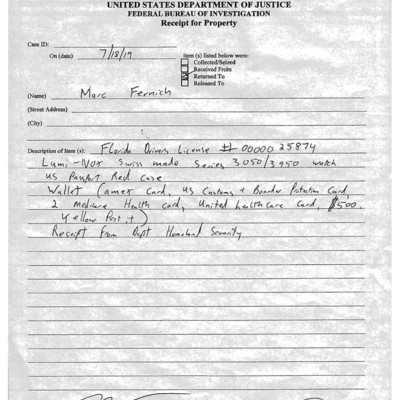 UNITED STATES DEPARTMENT OF JUSTICE
FEDERAL BUREAU OF INVESTIGATION
Receipt for Property
Case ID:
On (date) 7/18/19
item (s) listed below were:
Collected/Seized
Received From
Returned To
Released To
(Name) Marc Fernich
(Street Address)
(City)
Description of Item (s): Florida Drivers License # 00000 25874
Lumi-Nox Swiss made Series 3050/3950 watch
US Passport Red case
Wallet (amex Card, US Customs + Boarder Potection Card,
2 Medicare Health card, United healthcare Card, $500,
Yellow Post it)
Receipt from Dept Homeland Security